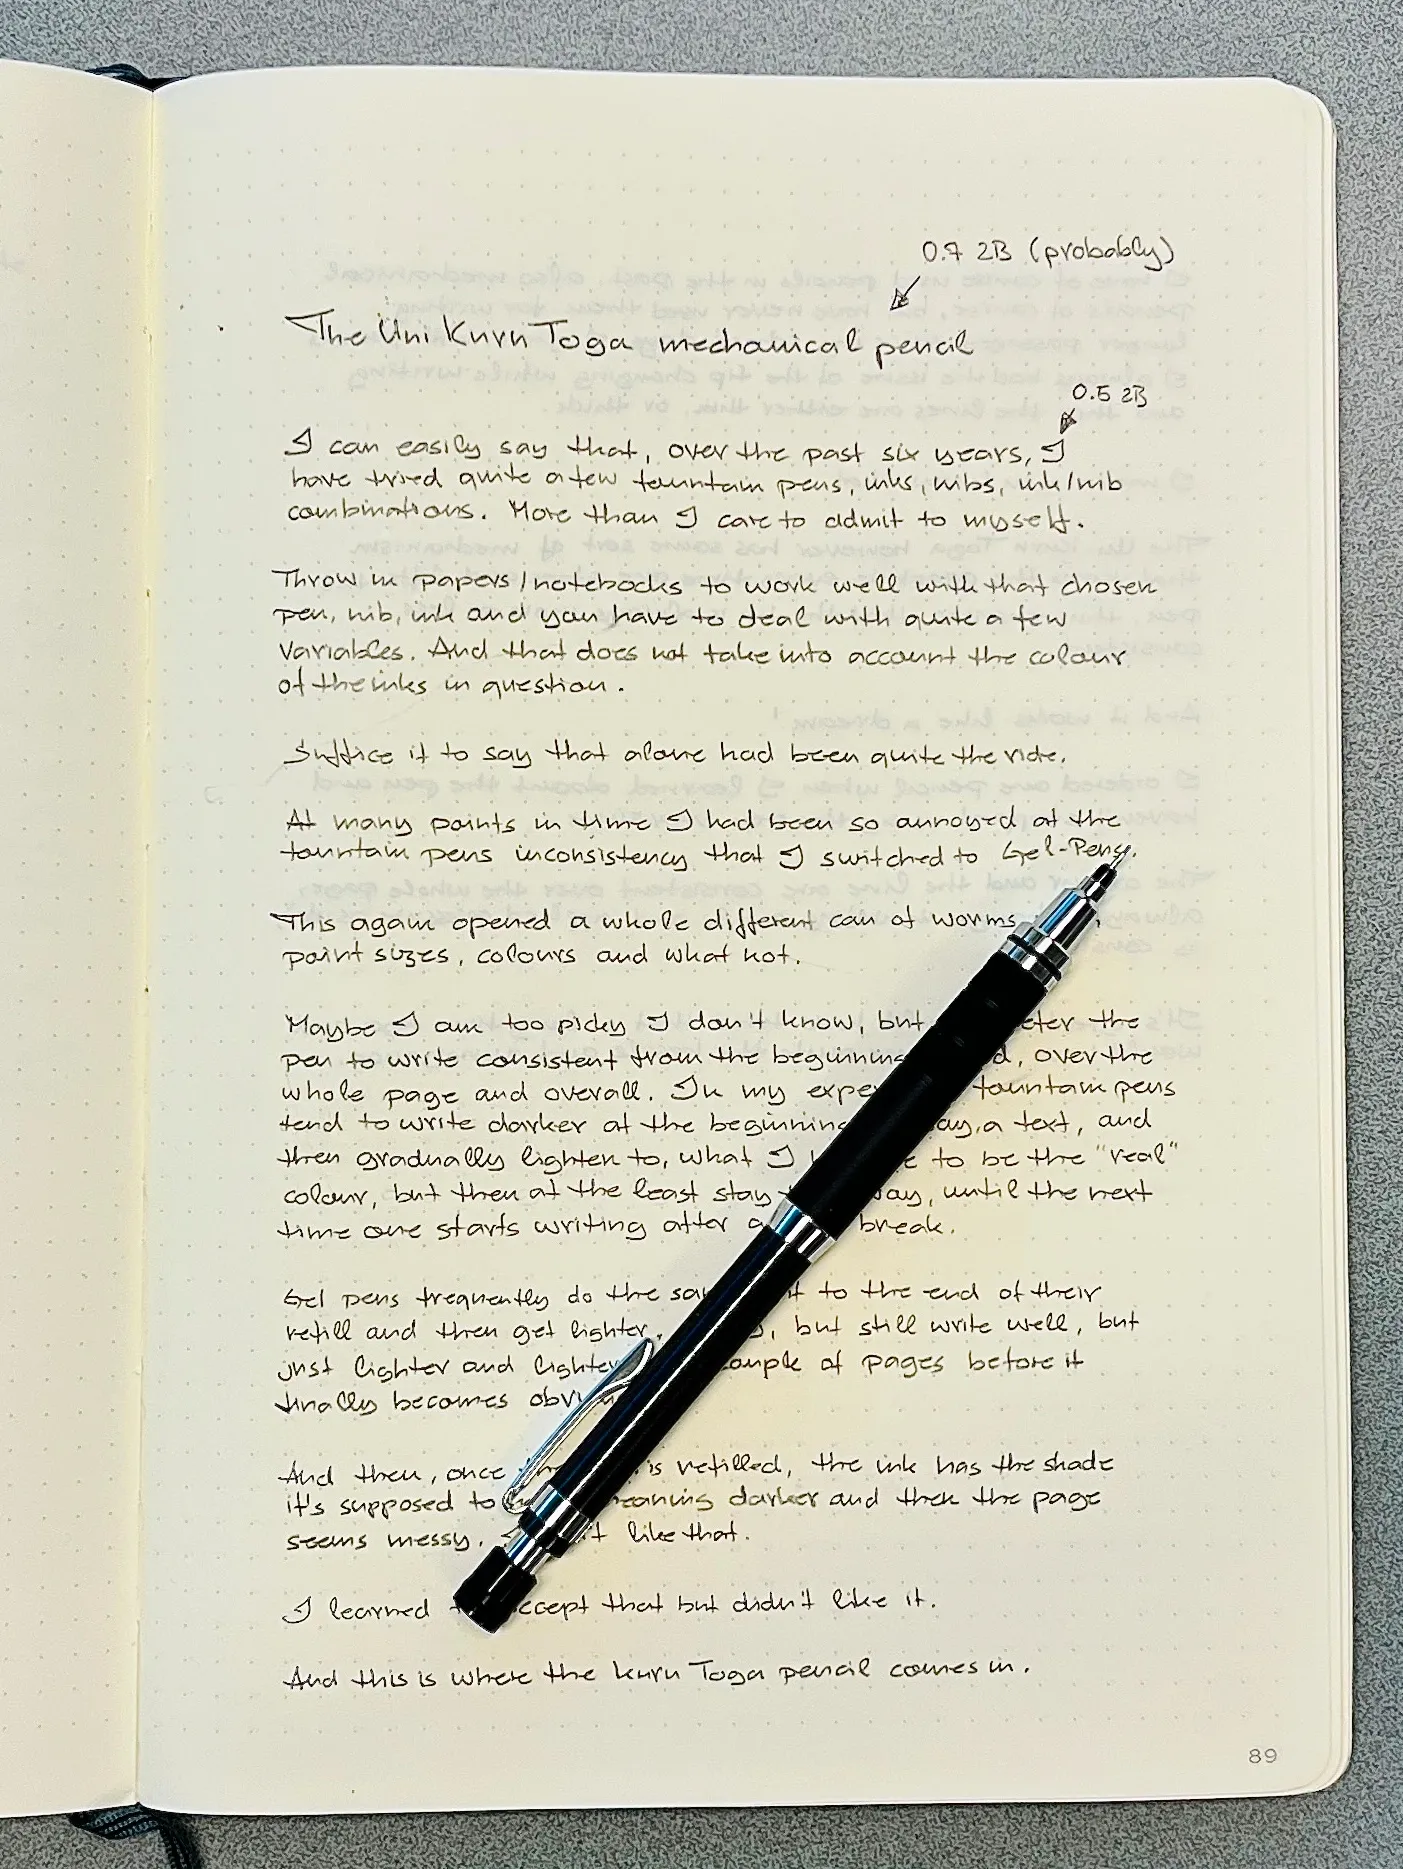 0.7 2B (probably)
The Uni Kuru Toga mechanical pencil
0.5 2B
I can easily say that, over the past six years, I
have tried quite a few fountain pens, inks, nibs, ink/nib
combinations. More than I care to admit to myself.
Throw in papers/notebooks to work well with that chosen
pen, nib, ink and you have to deal with quite a few
variables. And that does not take into account the colour
of the inks in question.
Suffice it to say that alone had been quite the ride.
At many points in time I had been so annoyed at the
fountain pens inconsistency that I switched to Gel-Pens.
This again opened a whole different can of worms
point sizes, colours and what not.
Maybe I am too picky I don't know, but the
pen to write consistent from the beginning over the
whole page and overall. In my fountain pens
tend to write darker at the beginning a text, and
then gradually lighten to, what I to be the "real"
colour, but then at the least stay way, until the next
time one starts writing after a break.
Gel pens frequently do the to the end of their
refill and then get lighter. but still write well, but
just lighter and lighter couple of pages before it
finally becomes
And then, once is refilled, the ink has the shade
it's supposed to meaning darker and then the page
seems messy. like that.
I learned accept that but didn't like it.
And this is where the Kuru Toga pencil comes in.
89